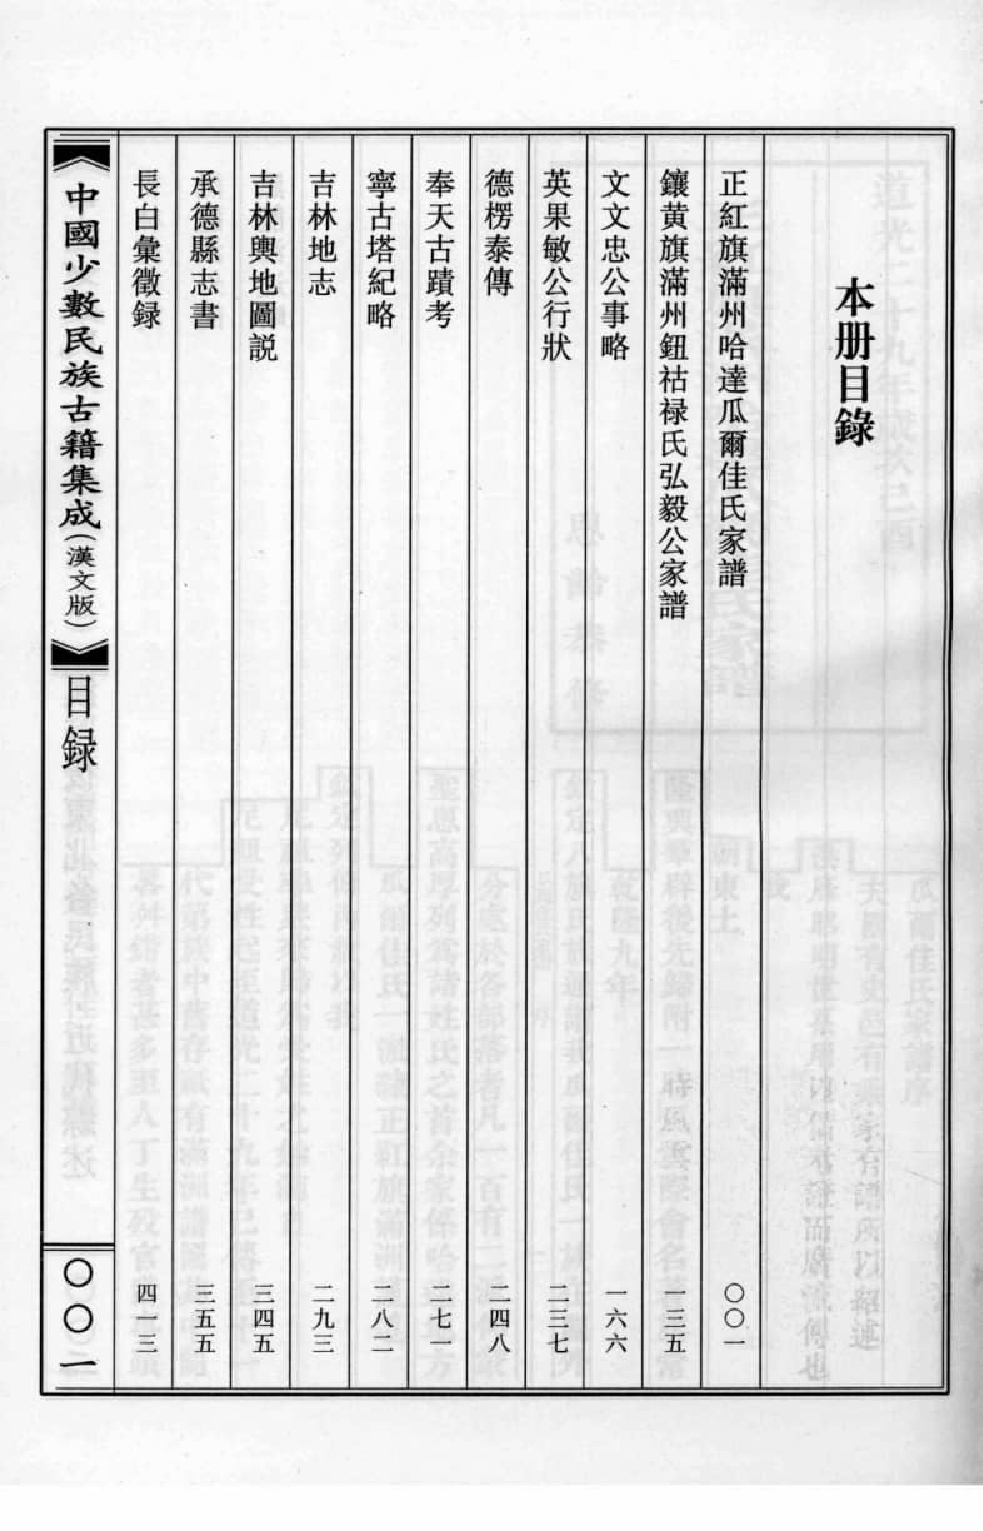 本册目錄
正紅旗滿州哈達瓜爾佳氏家譜 〇〇一
鑲黄旗滿州鈕祜禄氏弘毅公家譜 一三五
文文忠公事略 一六六
英果敏公行狀 二三七
德楞泰傳 二四八
奉天古蹟考 二七一
寧古塔紀略 二八二
吉林地志 二九三
吉林輿地圖説 三四五
承德縣志書 三五五
長白彙徵録 四一三
中國少數民族古籍集成(漢文版) 目録 〇〇一